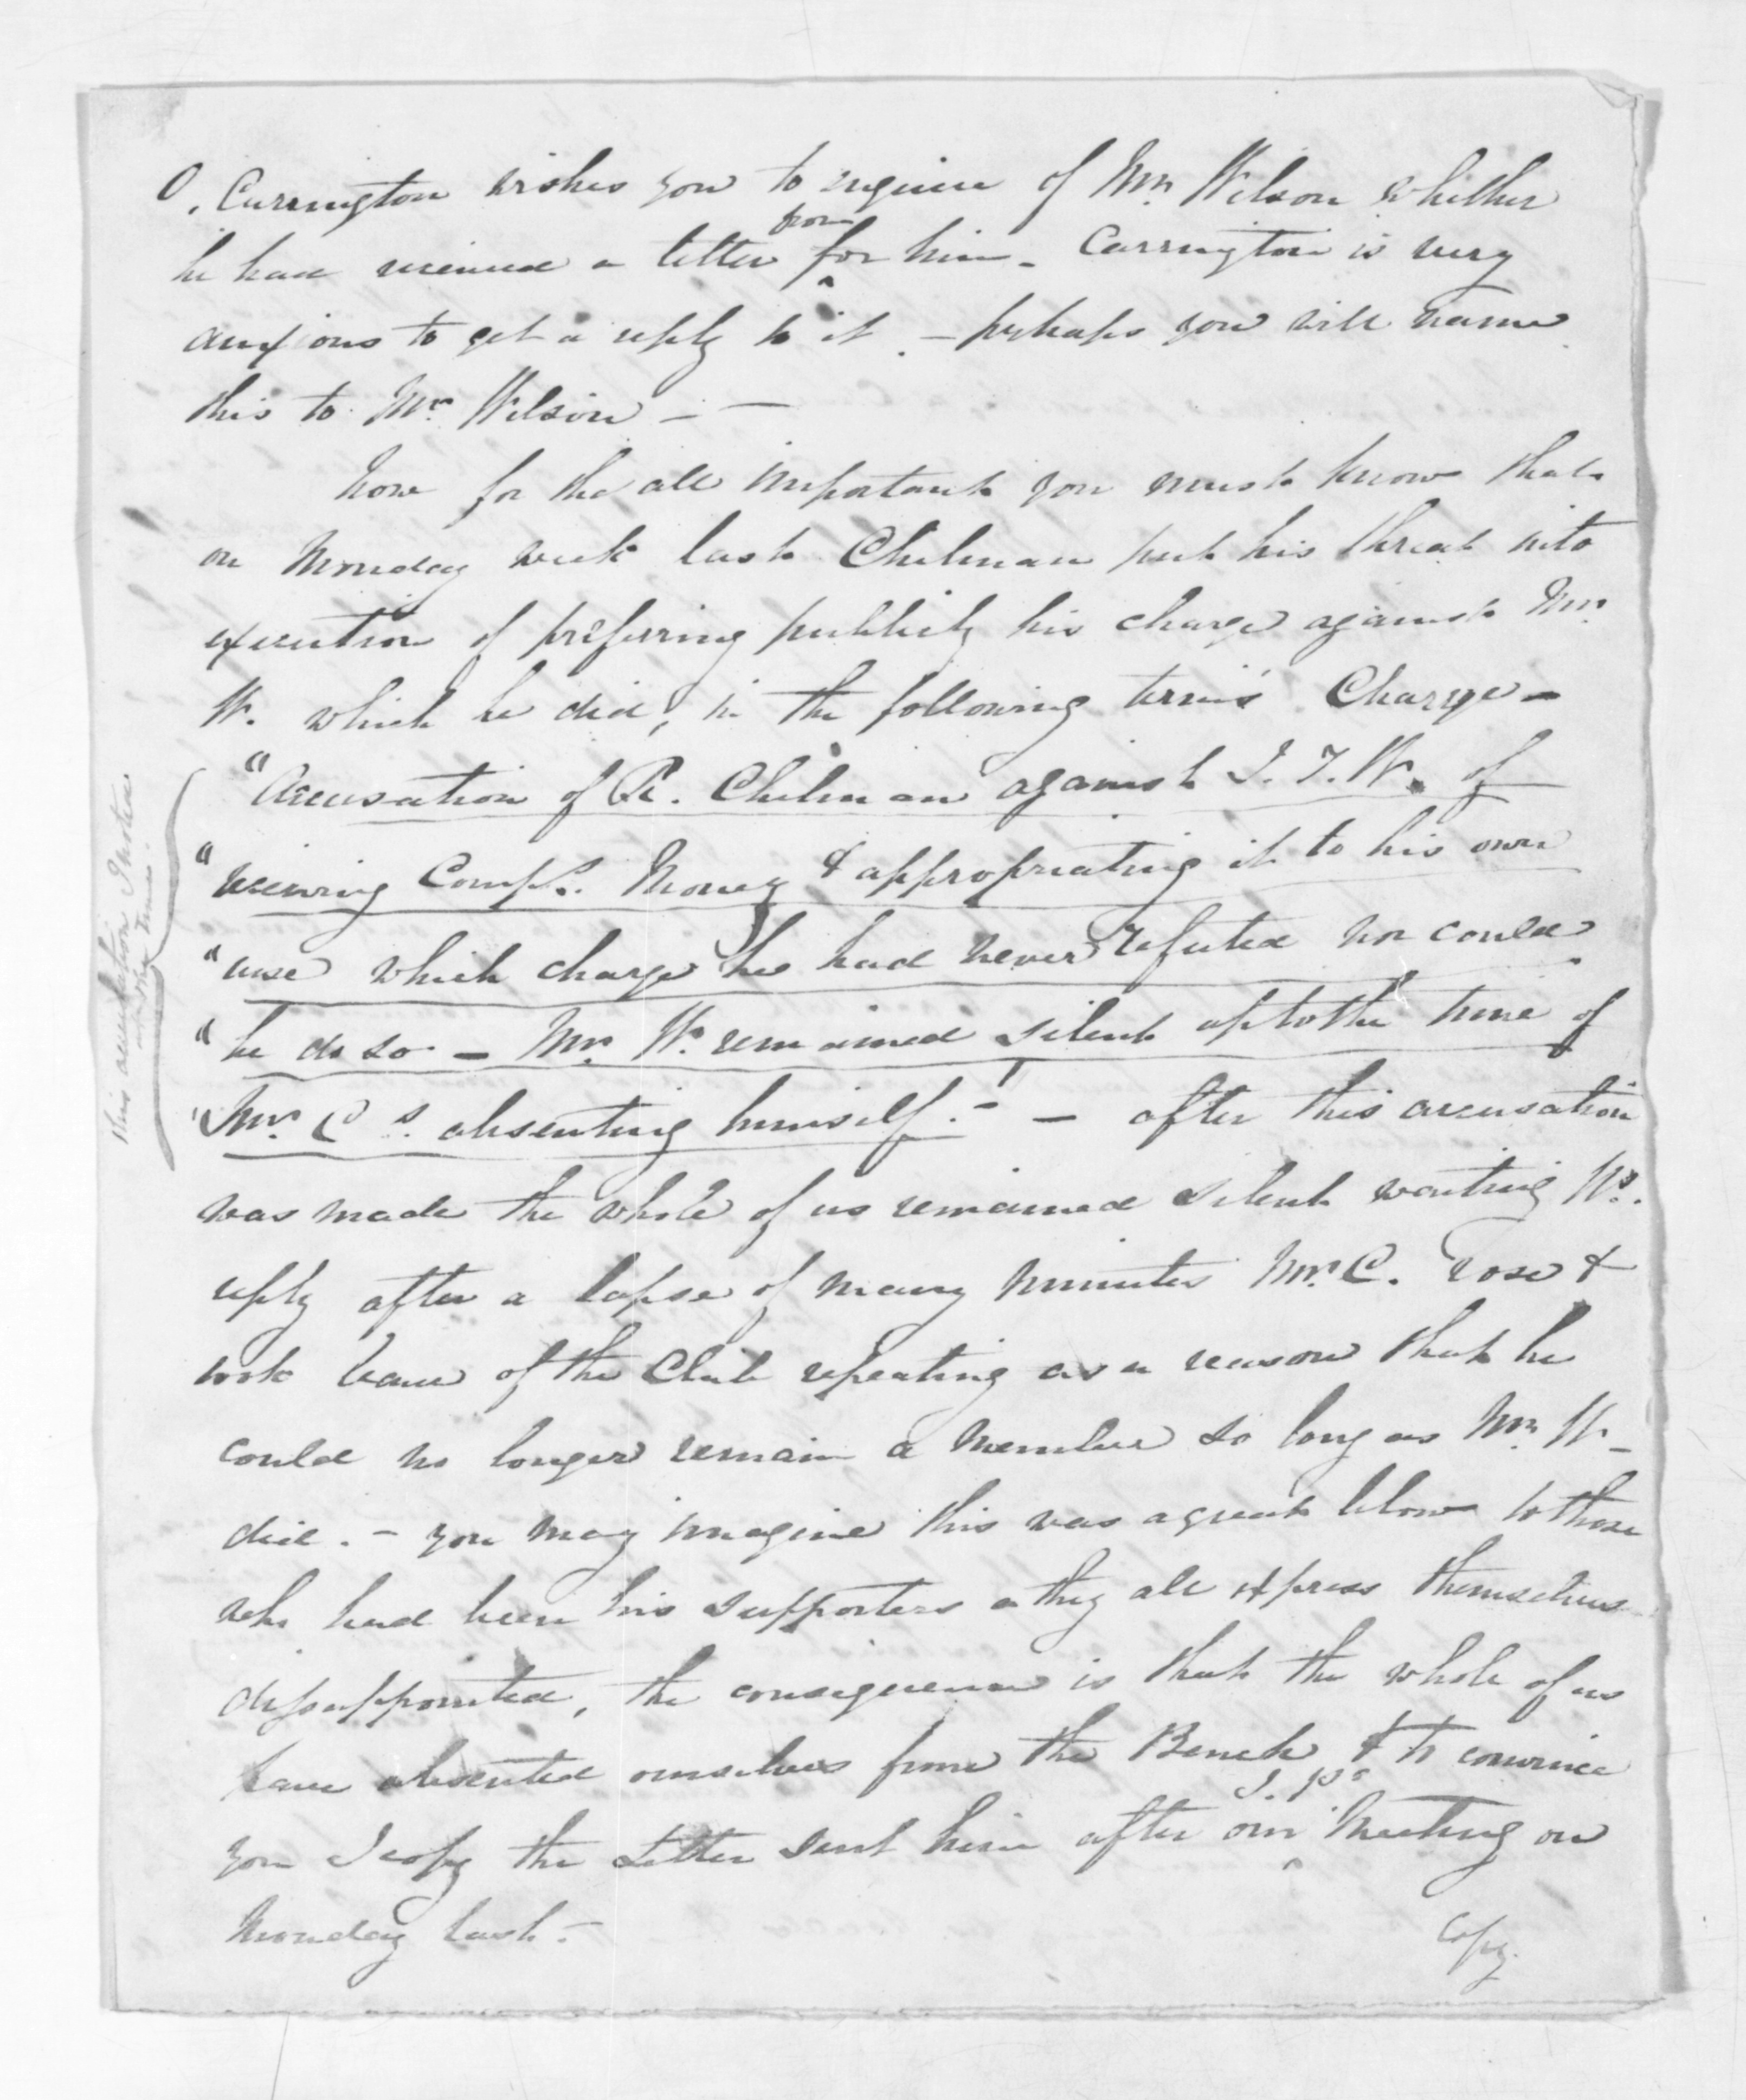 O. Carrington wishes you to enquire of Mr. Wilson whether
he had received a letter from for him - Carrington is very
anxious to get a reply to it. - perhaps you will name
this to Mr. Wilson - -
Now for the all important you must know that
on Monday week last Chilman put his threat into
execution of preferring publicly his charge against Mr.
W. which he did, in the following terms Charge -
"Accusation of R. Chilman against J. T. W. of
"receiving Comps. Money & appropriating it to his own
"use which charge he had never refuted nor could
"he do so - Mr. W. remained silent up to the time of
"Mr. C's. absenting himself." - after this accusation
was made the whole of us remained silent waiting Ws.
reply after a lapse of many minutes Mr. C. rose &
took leave of the Club repeating as a reason that he
could no longer remain a Member so long as Mr. W -
did. - you may imagine this was a great blow to those
who had been his supporters & they all express themselves
dissappointed, the consequence is that the whole of us
have absented ourselves from the Bench & to convince
you I copy the Letter sent him after our J. Ps Meeting on
Monday last. -
Copy.
This accusation I noted
times.